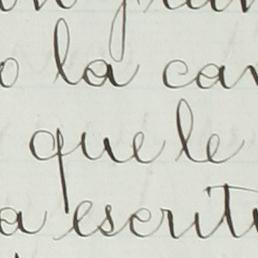 o la can
que le
a escritu